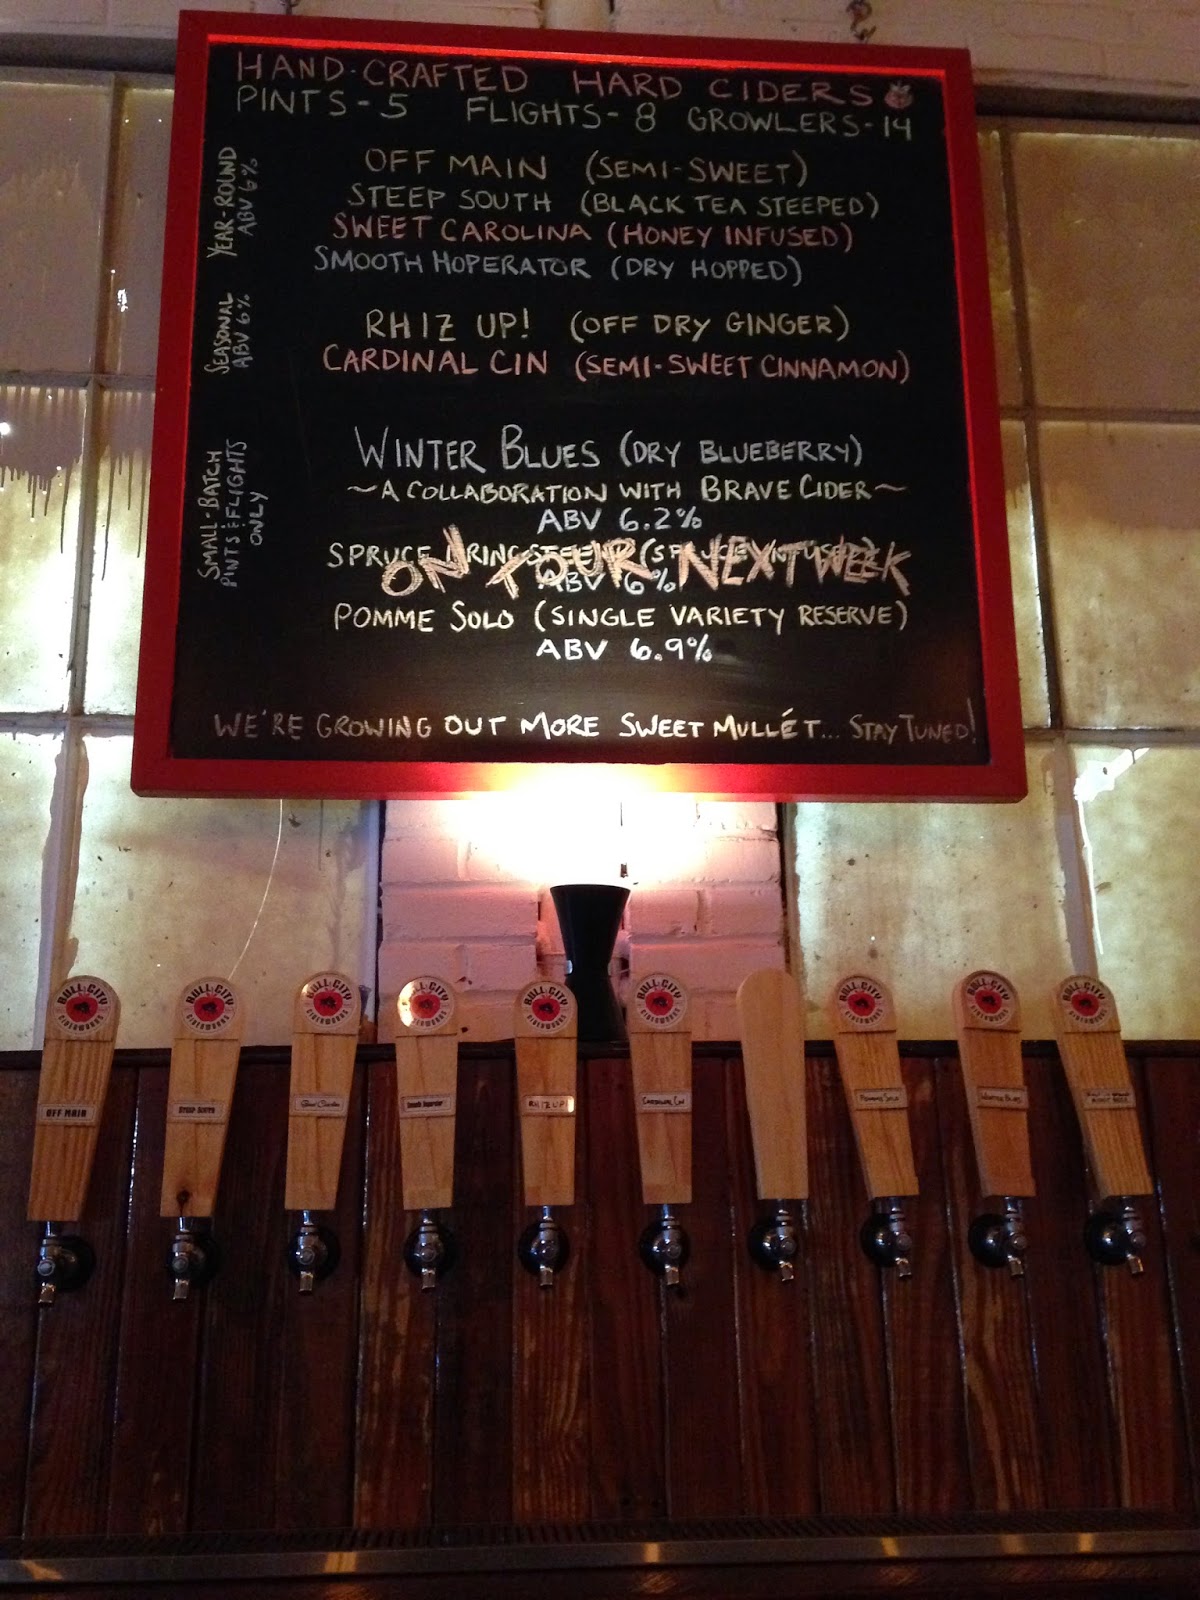 HAND-CRAFTED HARD CIDERS
PINTS-5 FLIGHTS-8 GROWLERS-14
YEAR-ROUND
ABV 6%
OFF MAIN (SEMI-SWEET)
STEEP SOUTH (BLACK TEA STEEPED)
SWEET CAROLINA (HONEY INFUSED)
SMOOTH HOPERATOR (DRY HOPPED)
SEASONAL
ABV 6%
RHIZ UP! (OFF DRY GINGER)
CARDINAL CIN (SEMI-SWEET CINNAMON)
SMALL-BATCH
PINTS & FLIGHTS
ONLY
WINTER BLUES (DRY BLUEBERRY)
~A COLLABORATION WITH BRAVE CIDER~
ABV 6.2%
SPRUCE SPRINGSTEEN (SPRUCE INFUSED)
ABV 6%
ON TOUR NEXT WEEK
POMME SOLO (SINGLE VARIETY RESERVE)
ABV 6.9%
WE'RE GROWING OUT MORE SWEET MULLÉT... STAY TUNED!
BULL CITY CIDERWORKS
OFF MAIN
BULL CITY CIDERWORKS
STEEP SOUTH
BULL CITY CIDERWORKS
Sweet Carolina
BULL CITY CIDERWORKS
Smooth Hoperator
BULL CITY CIDERWORKS
RHIZ UP!
BULL CITY CIDERWORKS
CARDINAL CIN
BULL CITY CIDERWORKS
POMME SOLO
BULL CITY CIDERWORKS
WINTER BLUES
BULL CITY CIDERWORKS